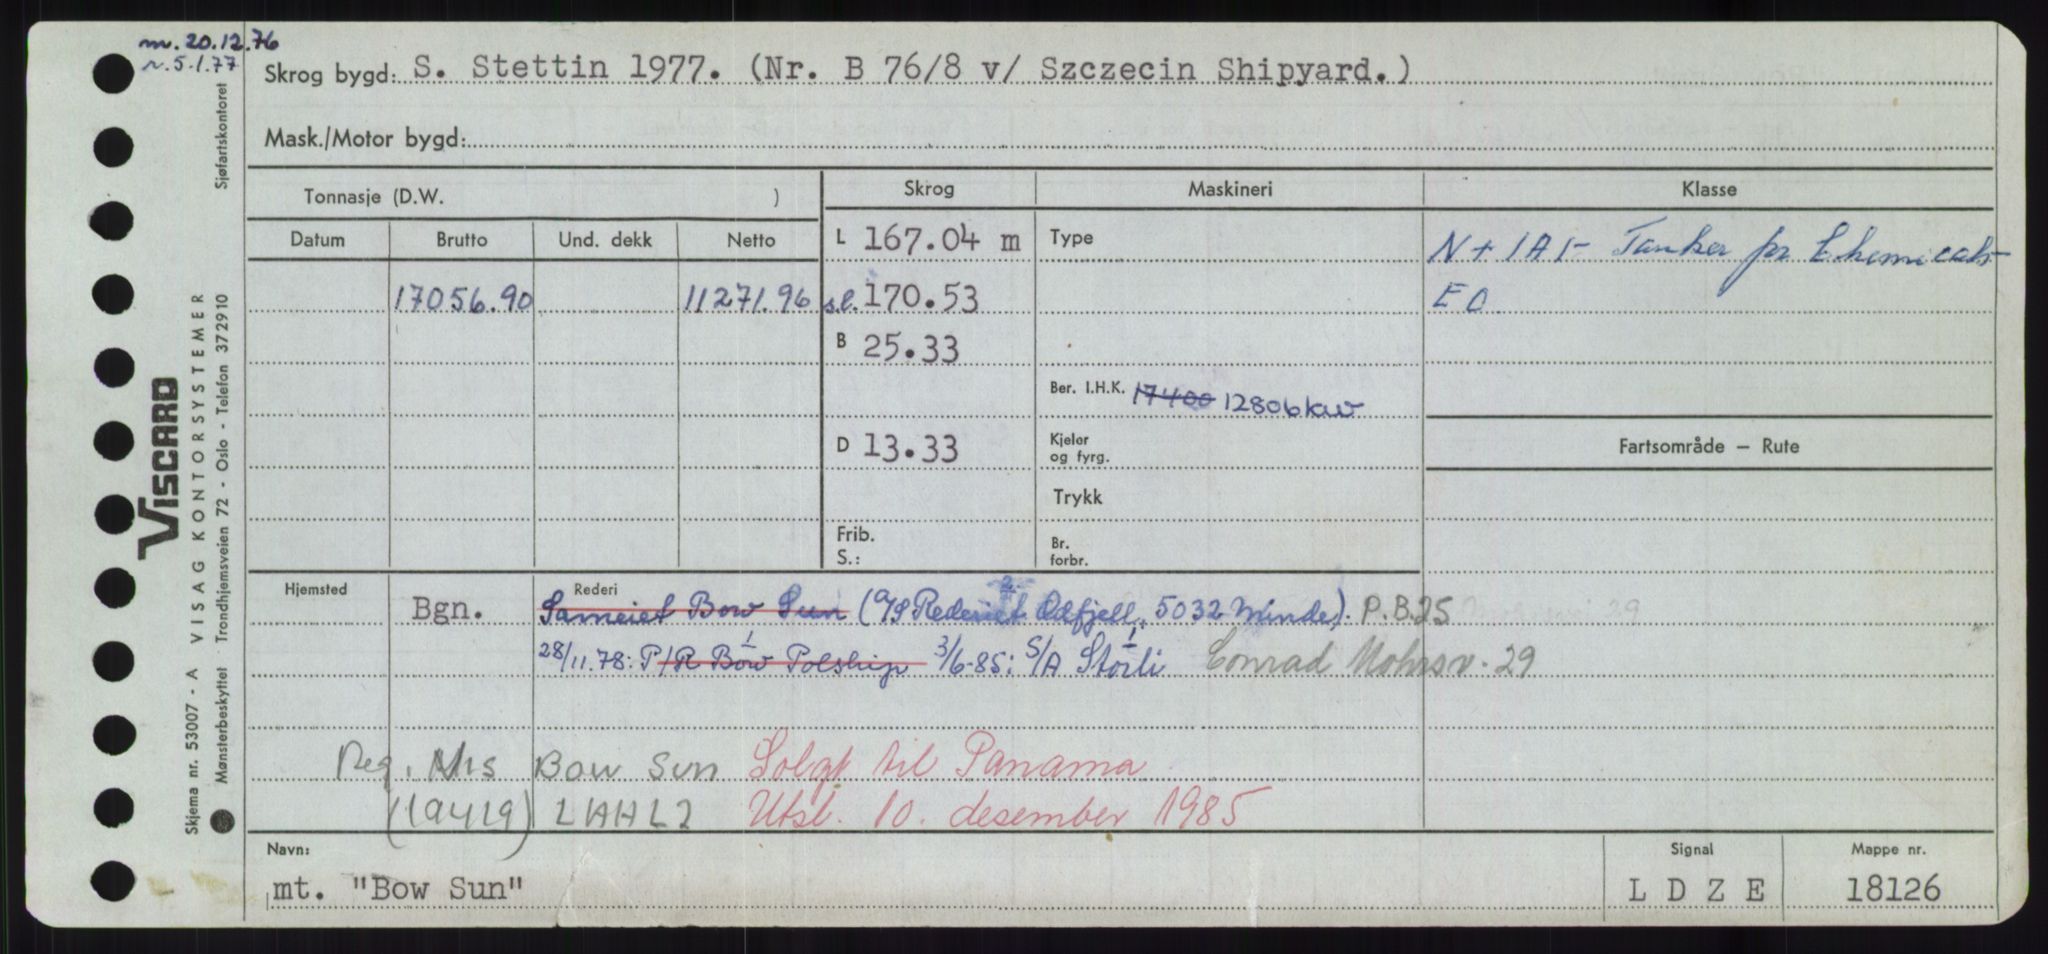 m. 20.12.76
r. 5.1.77
Skrog bygd: S. Stettin 1977. (Nr. B 76/8 v/ Szczecin Shipyard.)
Mask./Motor bygd:
Tonnasje (D.W. )
Skrog
Maskineri
Klasse
Datum
Brutto
Und. dekk
Netto
L 167.04 m
Type
N + 1A1 - Tanker for Chemicals
17056.90
11271.96
s.l. 170.53
EO
B 25.33
Ber. I.H.K. 17400 12806 kw
D 13.33
Kjeler
og fyrg.
Fartsområde — Rute
Trykk
Frib.
S.:
Br.
forbr.
Hjemsted
Rederi
Bgn.
Sameiet Bow Sun (A/S Rederiet Odfjell, 5032 Minde). P.B.25
28/11.78: P/R Bow Polship 3/6-85: S/A Storli Conrad Mohrsv. 29
Reg. Nis Bow Sun Solgt til Panama
(19419) LAHL2 Utsl. 10. desember 1985
Navn:
mt. "Bow Sun"
Signal
L D Z E
Mappe nr.
18126
VISCARD
Skjema nr. 53007 - A VISAG KONTORSYSTEMER
Mønsterbeskyttet Trondhjemsveien 72 - Oslo - Telefon 372910 Sjøfartskontoret